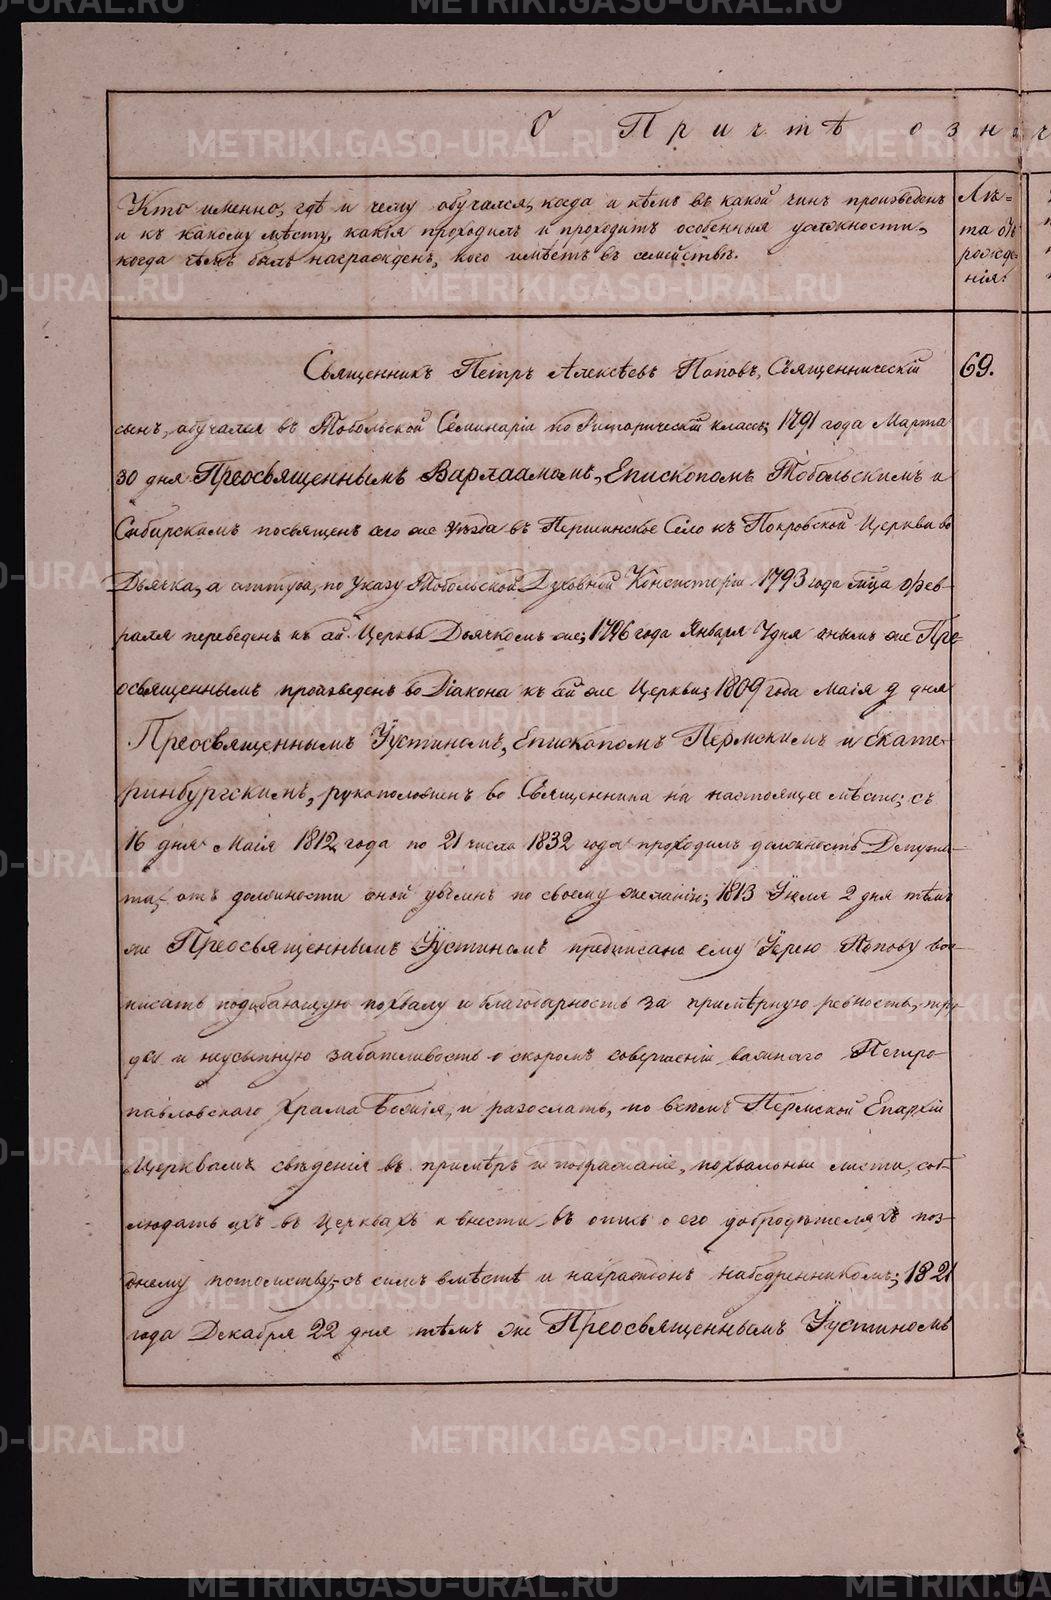 О Причтѣознач
Кто именно, гдѣ и чему обучался, когда и кѣмъ въ какой чинъ произведенъ
и къ какому мѣсту, какія проходилъ и проходитъ особенныя должности,
когда чѣмъ былъ награжденъ, кого имѣетъ въ семействѣ.
Лѣ-
та отъ
рожде-
нія.
Священникъ Петръ Алексѣевъ Поповъ, Священническій
69.
сынъ, обучался въ Тобольской Семинаріи по Риторическій классъ; 1791 года Марта
30 дня Преосвященнымъ Варлаамомъ, Епископомъ Тобольскимъ и
Сибирскимъ посвященъ сего же уѣзда въ Першинское Село къ Покровской Церкви во
Дьячка, а оттуда, по указу Тобольской Духовной Консисторіи 1793 года мца Фев-
раля переведенъ къ ей. Церкви Дьячкомъ же; 1796 года Января 7 дня онымъ же Пре-
освященнымъ произведенъ во Діакона къ ей же Церкви; 1809 года Маія 9 дня
Преосвященнымъ Іустиномъ, Епископомъ Пермскимъ и Екате-
ринбургскимъ, рукоположенъ во Священника на настоящее мѣсто; съ
16 дня Маія 1812 года по 21 число 1832 года проходилъ должность Депута-
та, отъ должности оной уволенъ по своему желанію; 1813 Іюля 2 дня тѣмъ
же Преосвященнымъ Іустиномъ предписано ему Іерею Попову
писать подобающую похвалу и благодарность за примѣрную ревность, тру-
ды и неусыпную заботливость о скоромъ совершеніи каменнаго Петро-
павловскаго Храма Божія, и разослать, по всѣмъ Пермской Епархіи
Церквамъ свѣденія въ примѣръ и подражаніе, похвальные листы, соб-
людать ихъ въ Церквахъ и внести въ опись о его добродѣтеляхъ поз-
днему потомству; съ симъ вмѣстѣ и награжденъ набедренникомъ; 1821
года Декабря 22 дня тѣмъ же Преосвященнымъ Іустиномъ
METRIKI.GASO-URAL.RU